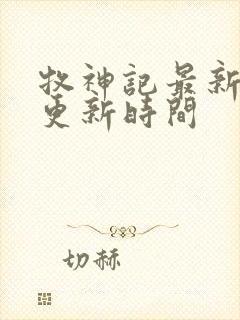 牧神記最新
更新時間
切赫